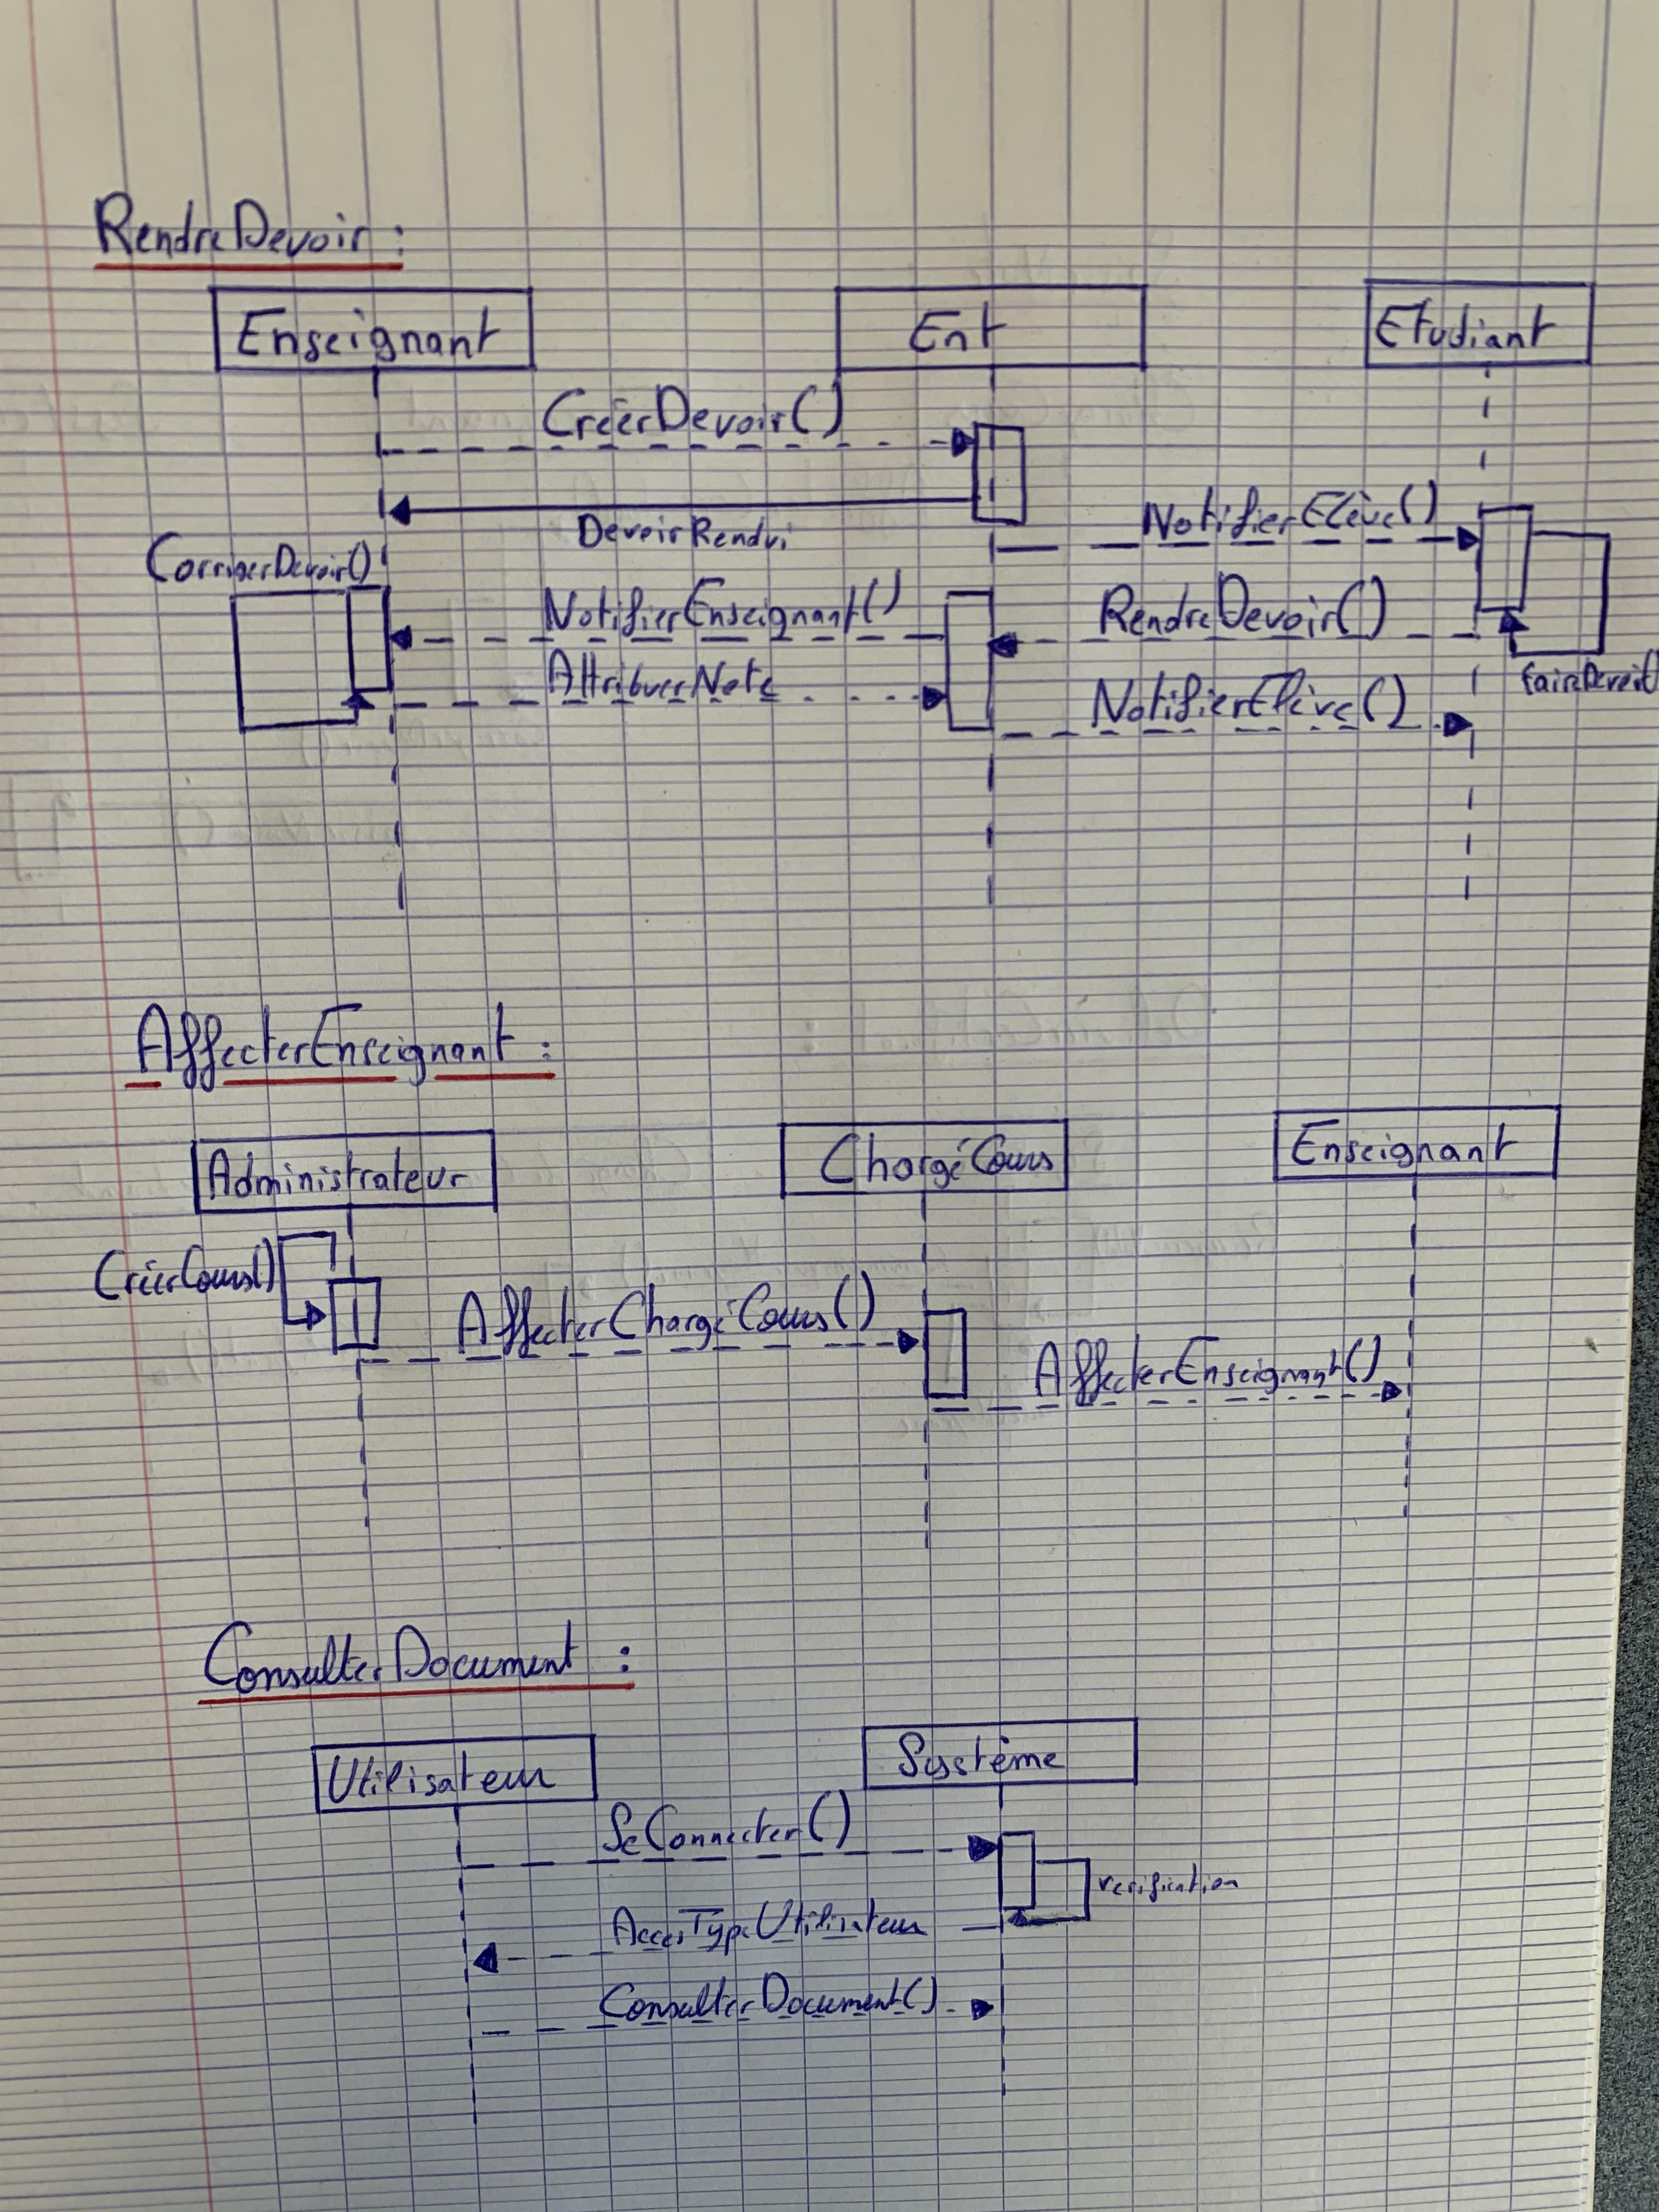 RendreDevoir :
Enseignant
Ent
Etudiant
CréerDevoir()
DevoirRendu
NotifierElève()
CorrigerDevoir()
NotifierEnseignant()
RendreDevoir()
faireDevoir
AttribuerNote
NotifierElève()
AffecterEnseignant :
Administrateur
ChargéCours
Enseignant
CréerCours()
AffecterChargéCours()
AffecterEnseignant()
ConsulterDocument :
Utilisateur
Système
SeConnecter()
verification
AccesTypeUtilisateur
ConsulterDocument()